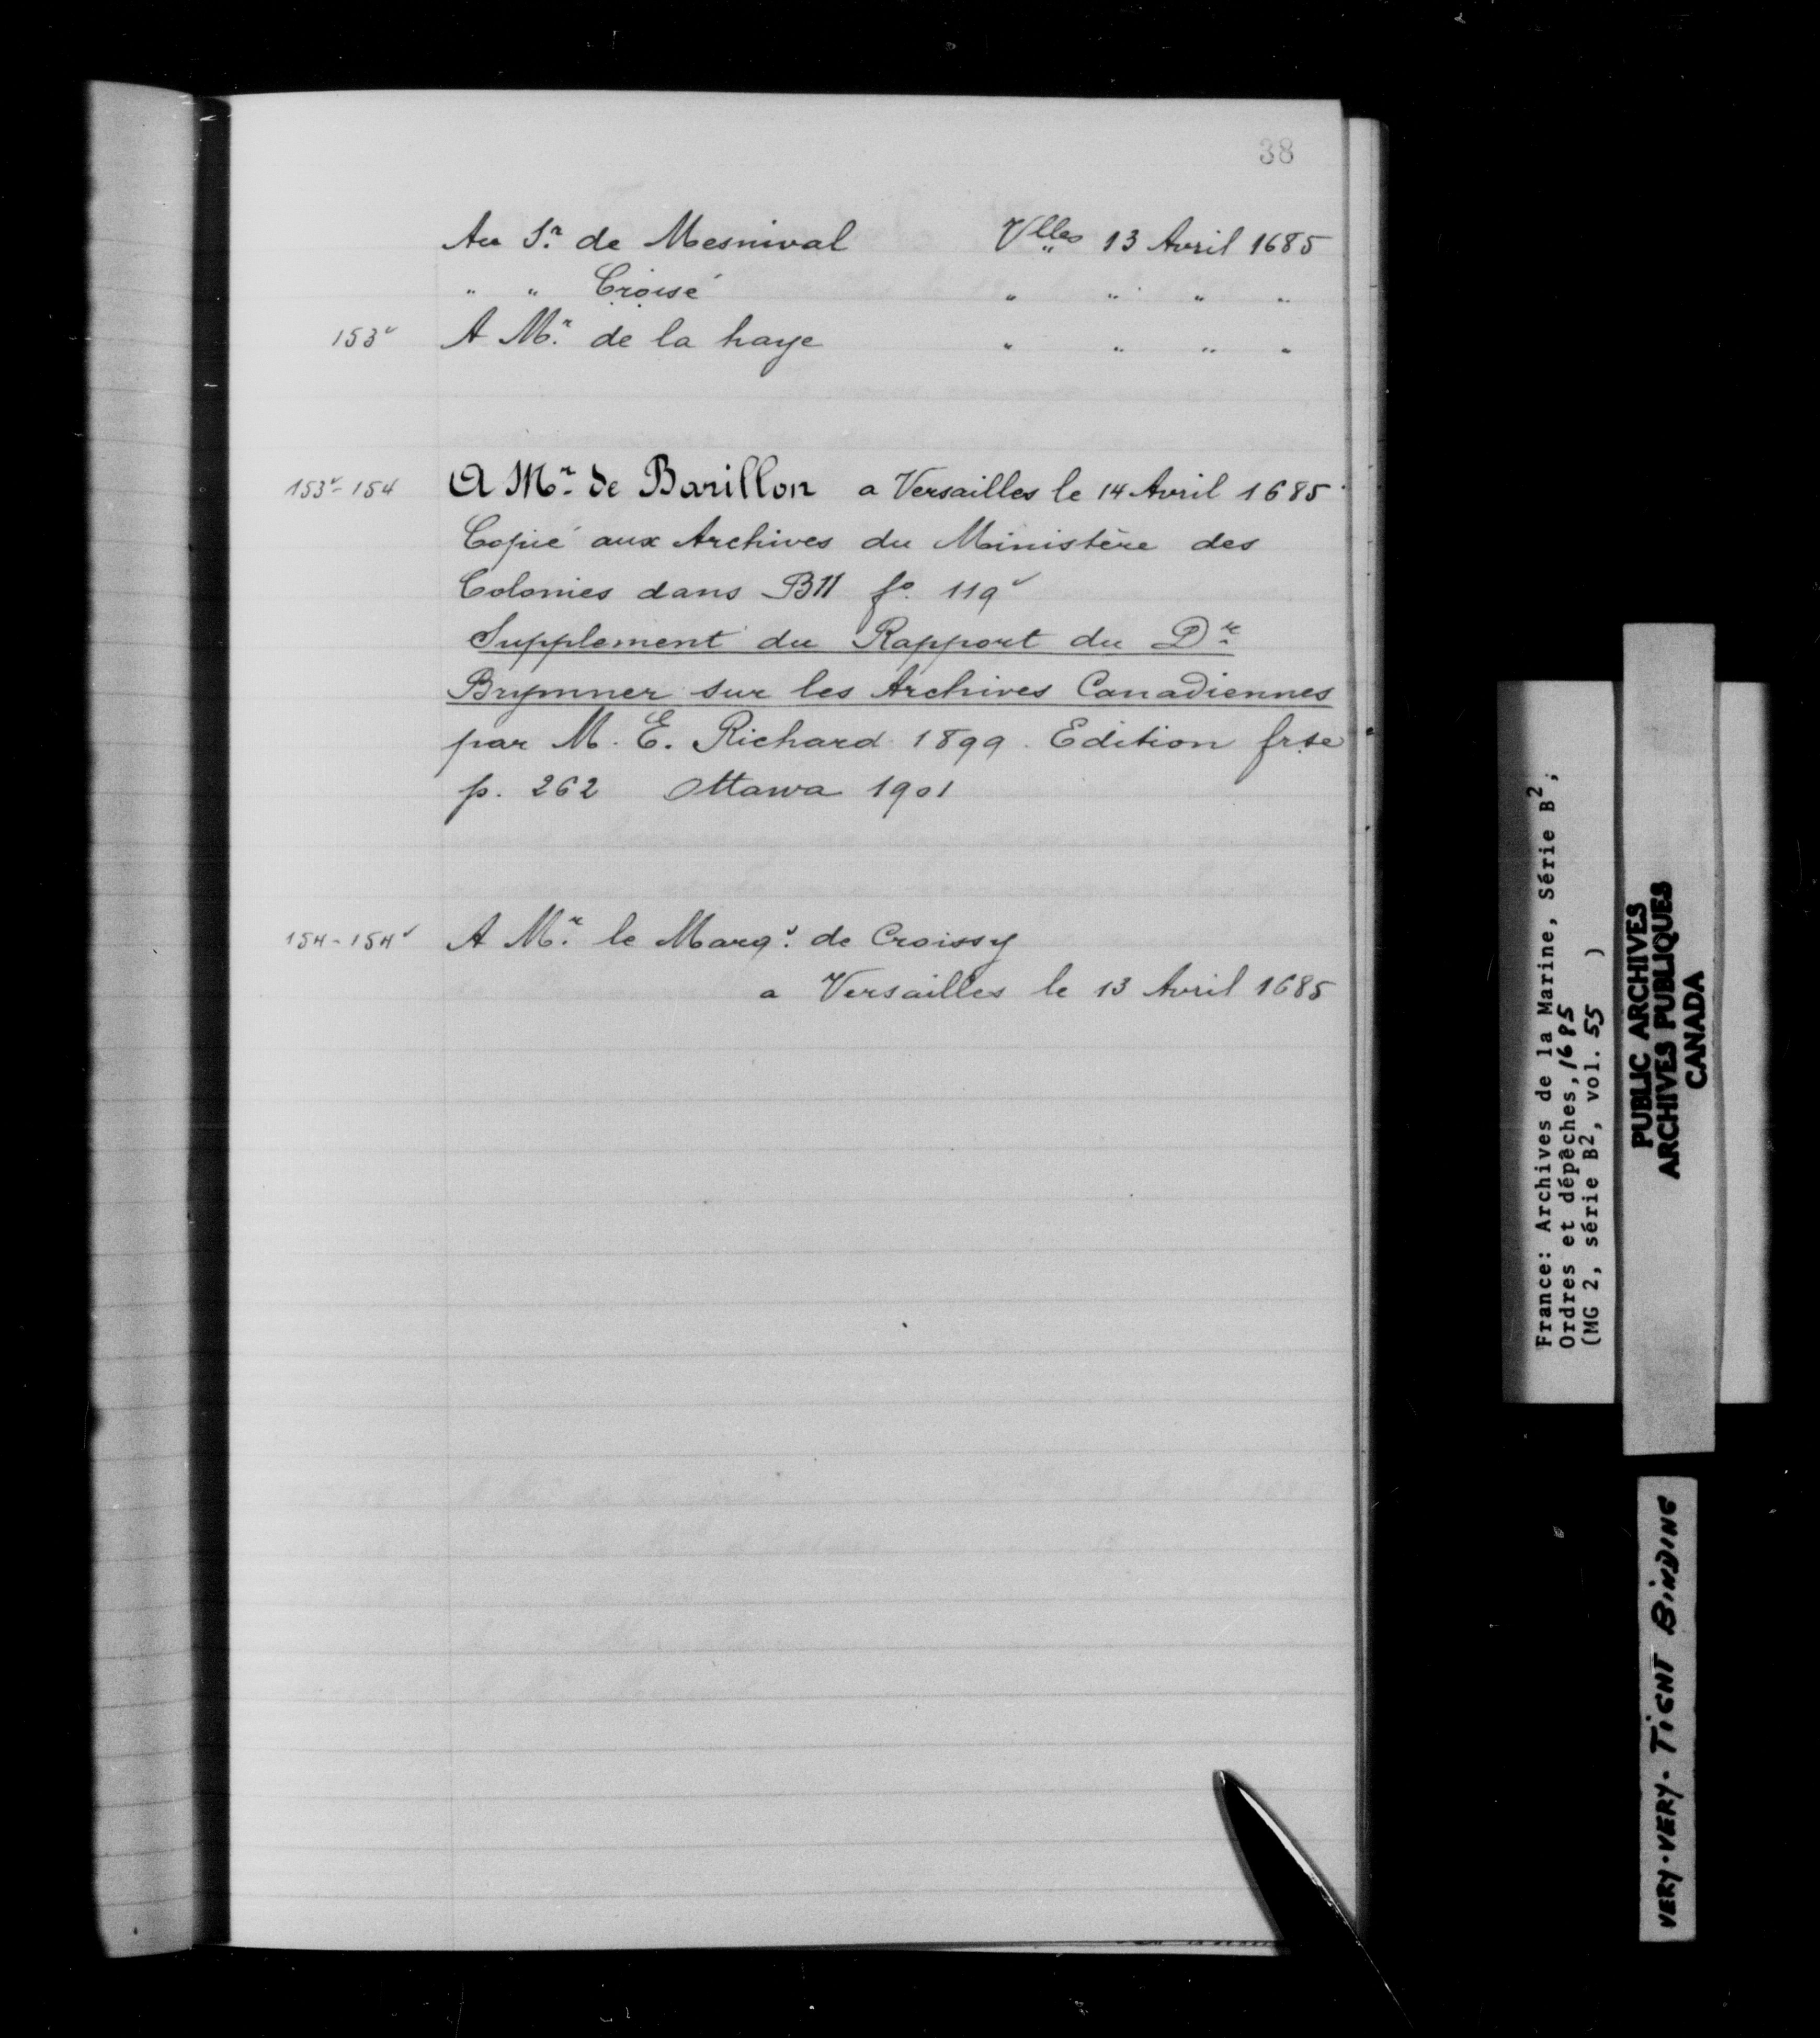 38
Au Sr. de Mesnival Vlles 13 Avril 1685
" " Croisé " " " "
153v A Mr. de la haye " " " "
153v-154 A Mr. de Barillon a Versailles le 14 Avril 1685
Copié aux Archives du Ministère des
Colonies dans B11 fo. 119v
Supplement du Rapport du Dr.
Brymner sur les Archives Canadiennes
par M. E. Richard 1899. Edition frse
p. 262 Ottawa 1901
154-154v A Mr. le Marqs. de Croissy
a Versailles le 13 Avril 1685
France: Archives de la Marine, Série B2,
Ordres et dépêches, 1685
(MG 2, série B2, vol. 55 )
PUBLIC ARCHIVES
ARCHIVES PUBLIQUES
CANADA
VERY·VERY·TIGHT BINDING